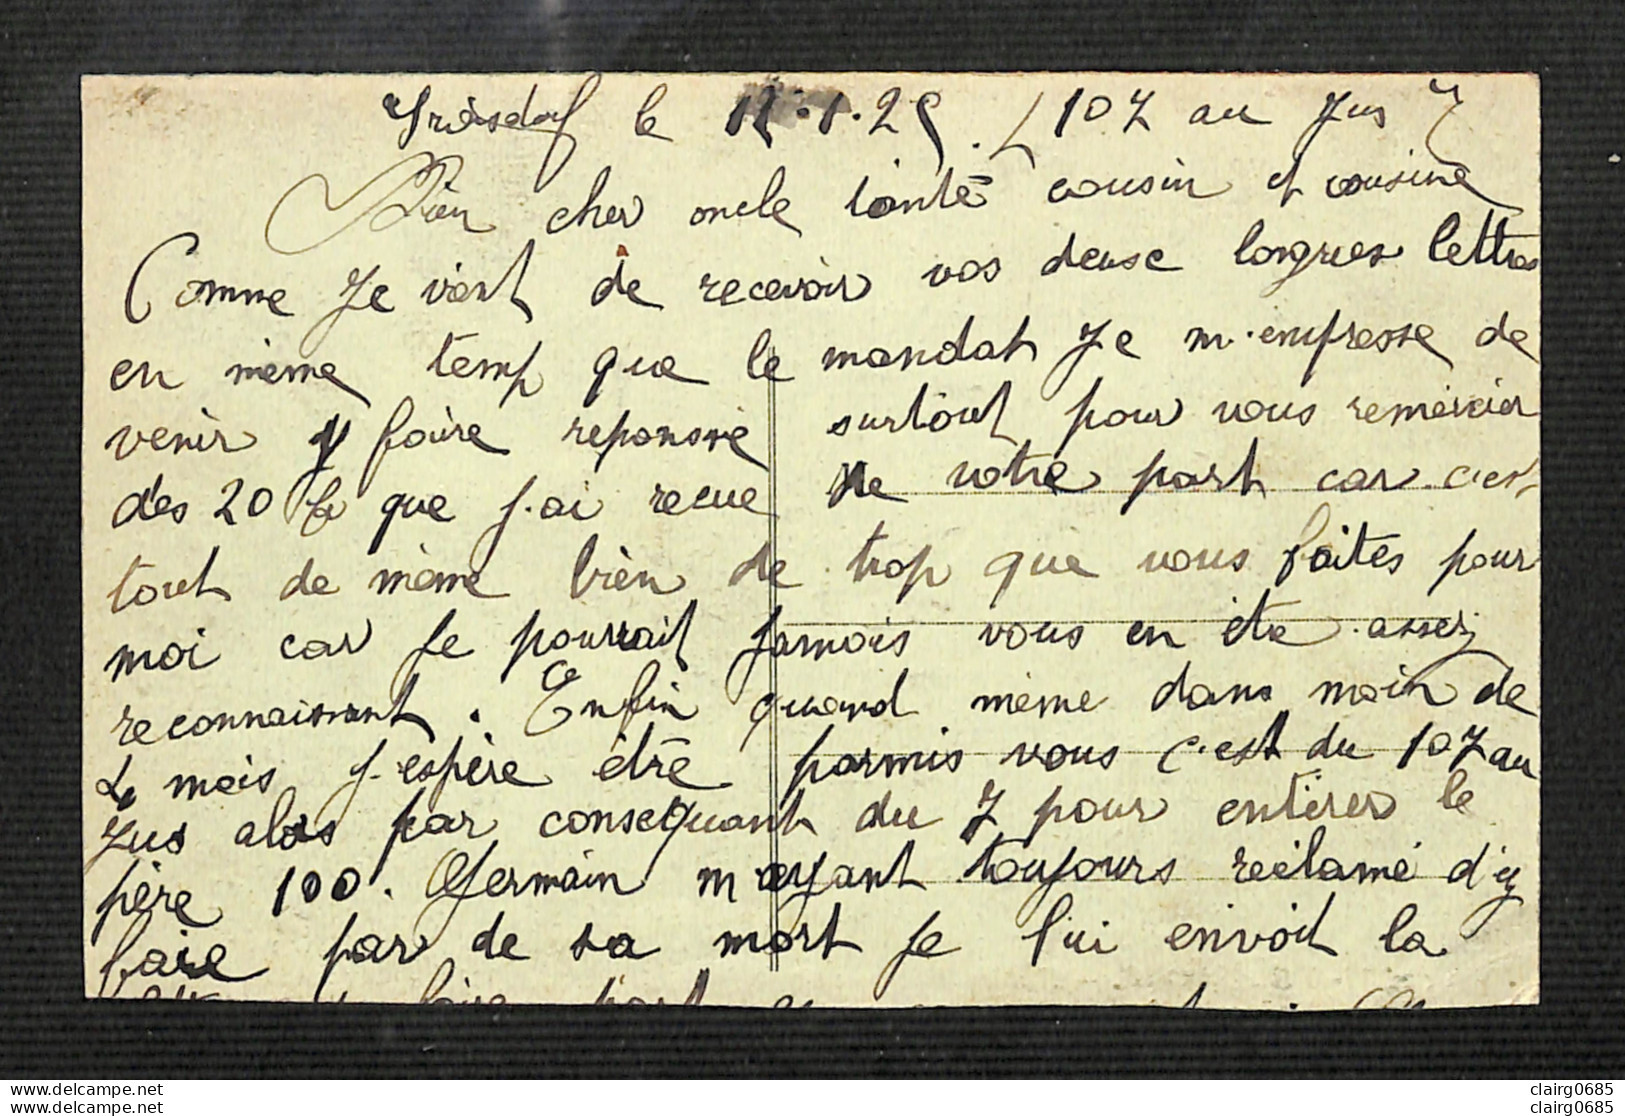 le 12.1.25. (107 au Jus 7
Bien cher oncle tante cousin et cousine
Comme Je vient de recevoir vos deuse longues lettres
en même temp que le mandat Je m'empresse de
venir y faire reponsse surtout pour vous remercier
des 20 f que j.ai recue de votre part car c'est
tout de même bien de trop que vous faites pour
moi car je pourrait jamais vous en être assez
reconnaissant. Enfin quand même dans moin de
de mois j.espère être parmis vous c'est du 107 au
Jus alors par consequant du 7 pour entirer le
père 100. Germain m'ayant toujours réclamé d'y
faire par de sa mort je lui envoit la
faire part
view larger image
clairg0685
clairg0685